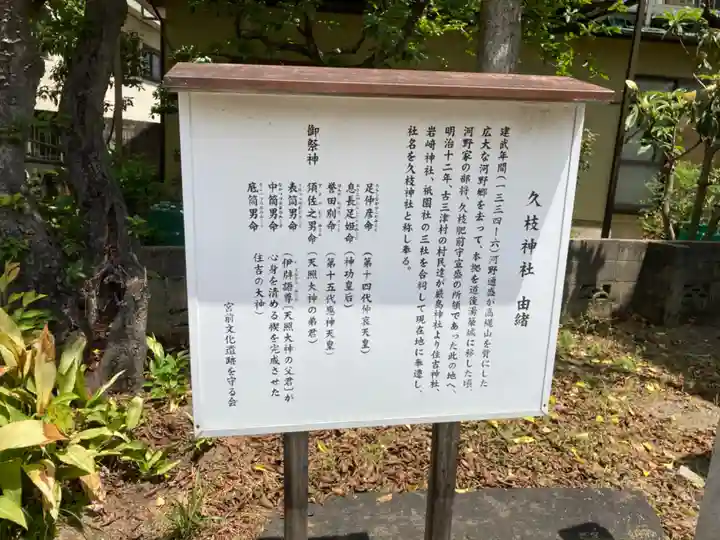 久枝神社 由緒
建武年間(一三三四~六)河野通盛が高縄山を背にした
広大な河野郷を去って、本拠を道後湯築城に移した頃、
河野家の部将、久枝肥前守宣盛の所領であった此の地へ、
明治十二年、古三津村の村民達が厳島神社より住吉神社、
岩崎神社、祇園社の三社を合祠して現在地に奉遷し、
社名を久枝神社と称し奉る。
御祭神
足仲彦命(第十四代仲哀天皇)
息長足姫命(神功皇后)
誉田別命(第十五代應神天皇)
須佐之男命(天照大神の弟君)
表筒男命
中筒男命
底筒男命
(伊弉諾尊(天照大神の父君)が
心身を清める禊を完成させた
住吉の大神)
宮前文化遺跡を守る会